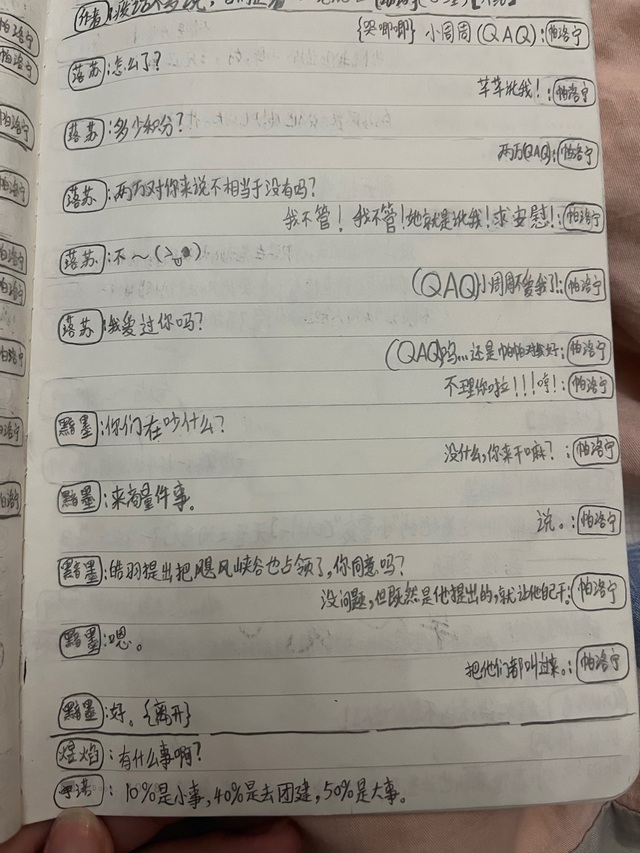 {哭唧唧} 小周周(QAQ):帕洛宁
落苏:怎么了?
芊芊讹我!:帕洛宁
落苏:多少积分?
两万(QAQ):帕洛宁
落苏:两万对你来说不相当于没有吗?
我不管!我不管!她就是讹我!求安慰!:帕洛宁
落苏:不~
(QAQ)小周周不爱我了!:帕洛宁
落苏:我爱过你吗?
(QAQ)呜...还是帕帕对我好:帕洛宁
不理你啦!!!哼!:帕洛宁
黯墨:你们在吵什么?
没什么,你来干嘛?:帕洛宁
黯墨:来商量件事。
说。:帕洛宁
黯墨:皓羽提出把飓风峡谷也占领了,你同意吗?
没问题,但既然是他提出的,就让他自己干。:帕洛宁
黯墨:嗯。
把他们都叫过来。:帕洛宁
黯墨:好。{离开}
煜焰:有什么事啊?
诺:10%是小事,40%是去团建,50%是大事。